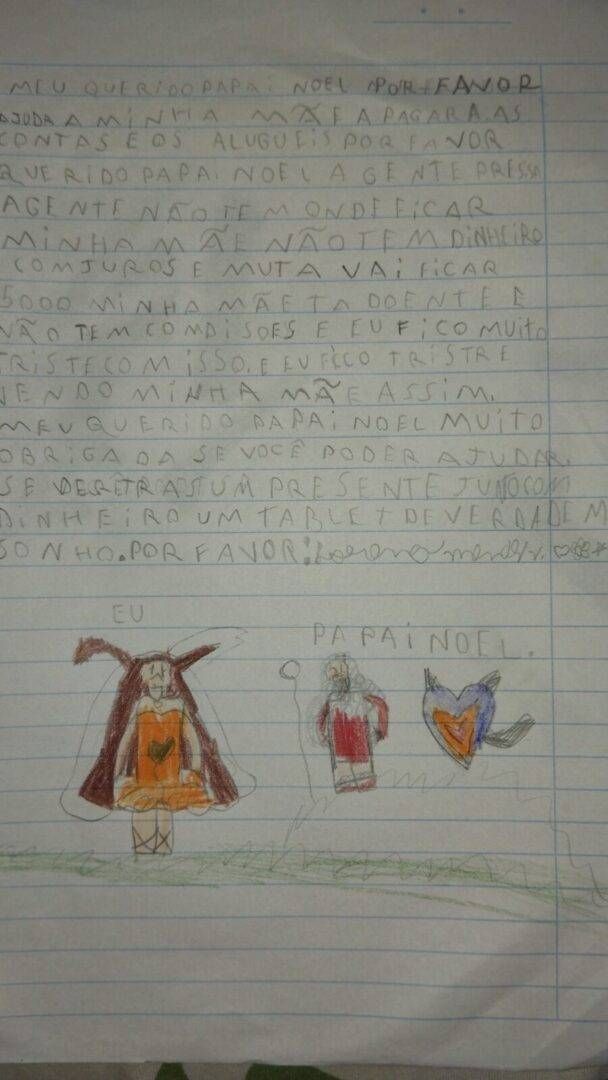 MEU QUERIDO PAPAi NOEL POR FAVOR
AJUDA A MINHA MÃE A PAGARA AS
CONTAS E OS ALUGUEIS POR FAVOR
QUERIDO PAPAi NOEL A GENTE PRESSA
A GENTE NÃO TEM ONDE FICAR
MINHA MÃE NÃO TEM DINHEIRO
COMJUROS E MUTA VAi FiCAR
5000 MINHA MÃE TA DOENTE E
NÃO TEM COMDISOES E EU FICO MUITO
TRISTE COM iSSO. E EU FICO TRISTRE
VENDO MINHA MÃE ASSIM.
MEU QUERIDO PAPAi NOEL MUITO
OBRIGADA SE VOCÊ PODER AJUDAR.
SE DER TRAS UM PRESENTE JUNO COM
DINHEIRO UM TABLET DE VERDADE M
SONHO. POR FAVOR!
EU
PAPAi NOEL.